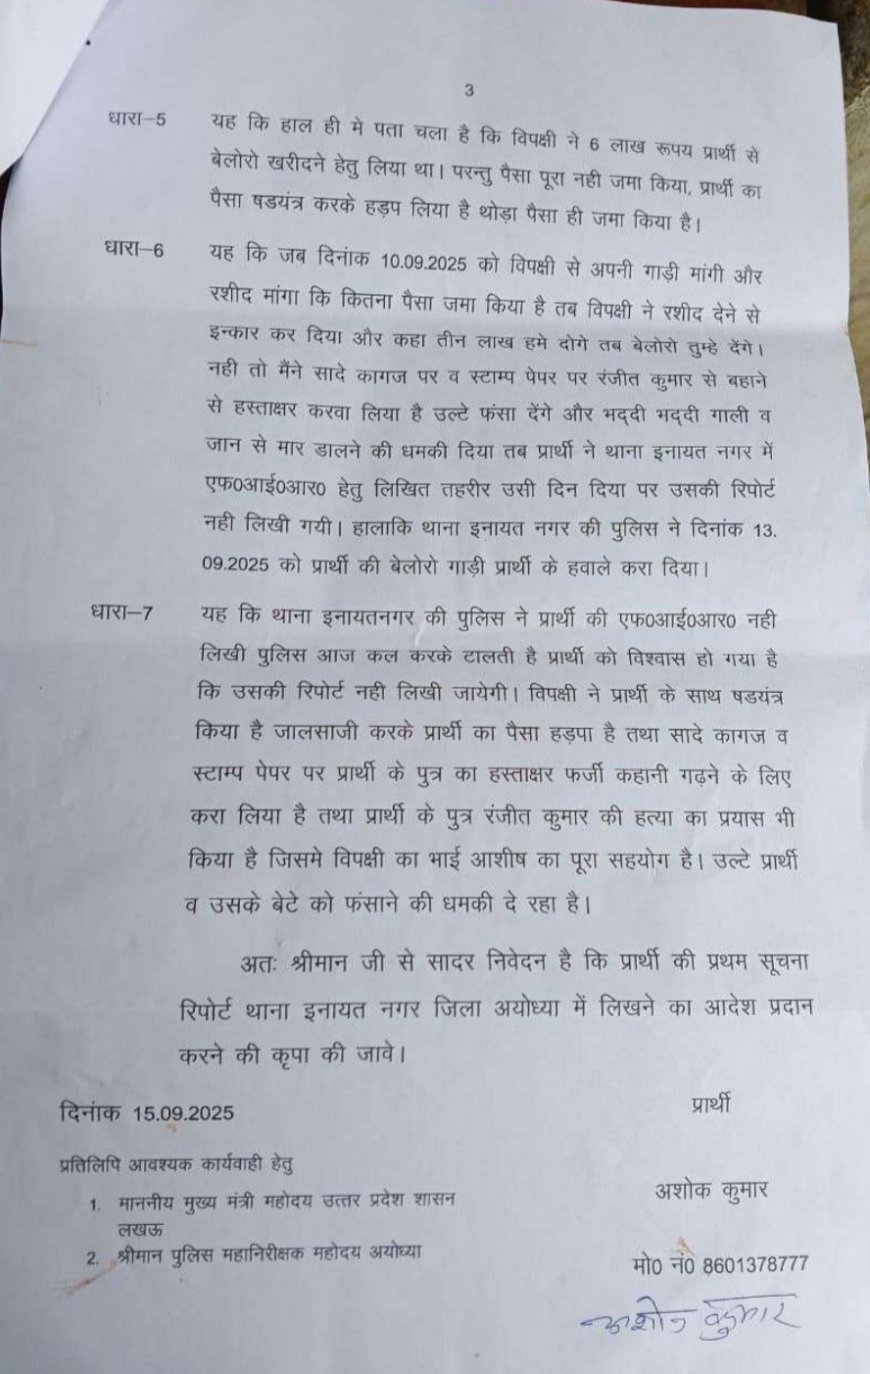 3
धारा–5 यह कि हाल ही मे पता चला है कि विपक्षी ने 6 लाख रूपय प्रार्थी से
बेलोरो खरीदने हेतु लिया था। परन्तु पैसा पूरा नही जमा किया, प्रार्थी का
पैसा षडयंत्र करके हड़प लिया है थोड़ा पैसा ही जमा किया है।
धारा–6 यह कि जब दिनांक 10.09.2025 को विपक्षी से अपनी गाड़ी मांगी और
रशीद मांगा कि कितना पैसा जमा किया है तब विपक्षी ने रशीद देने से
इन्कार कर दिया और कहा तीन लाख हमे दोगे तब बेलोरो तुम्हे देंगे।
नही तो मैंने सादे कागज पर व स्टाम्प पेपर पर रंजीत कुमार से बहाने
से हस्ताक्षर करवा लिया है उल्टे फंसा देंगे और भद्दी भद्दी गाली व
जान से मार डालने की धमकी दिया तब प्रार्थी ने थाना इनायत नगर में
एफ0आई0आर0 हेतु लिखित तहरीर उसी दिन दिया पर उसकी रिपोर्ट
नही लिखी गयी। हालाकि थाना इनायत नगर की पुलिस ने दिनांक 13.
09.2025 को प्रार्थी की बेलोरो गाड़ी प्रार्थी के हवाले करा दिया।
धारा–7 यह कि थाना इनायतनगर की पुलिस ने प्रार्थी की एफ0आई0आर0 नही
लिखी पुलिस आज कल करके टालती है प्रार्थी को विश्वास हो गया है
कि उसकी रिपोर्ट नही लिखी जायेगी। विपक्षी ने प्रार्थी के साथ षडयंत्र
किया है जालसाजी करके प्रार्थी का पैसा हड़पा है तथा सादे कागज व
स्टाम्प पेपर पर प्रार्थी के पुत्र का हस्ताक्षर फर्जी कहानी गढ़ने के लिए
करा लिया है तथा प्रार्थी के पुत्र रंजीत कुमार की हत्या का प्रयास भी
किया है जिसमे विपक्षी का भाई आशीष का पूरा सहयोग है। उल्टे प्रार्थी
व उसके बेटे को फंसाने की धमकी दे रहा है।
अतः श्रीमान जी से सादर निवेदन है कि प्रार्थी की प्रथम सूचना
रिपोर्ट थाना इनायत नगर जिला अयोध्या में लिखने का आदेश प्रदान
करने की कृपा की जावे।
दिनांक 15.09.2025
प्रार्थी
प्रतिलिपि आवश्यक कार्यवाही हेतु
1. माननीय मुख्य मंत्री महोदय उत्तर प्रदेश शासन
लखऊ
2. श्रीमान पुलिस महानिरीक्षक महोदय अयोध्या
अशोक कुमार
मो0 नं0 8601378777
अशोक कुमार